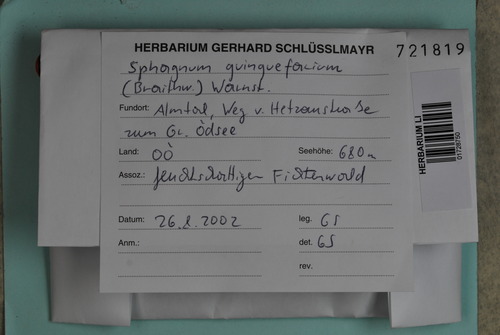 HERBARIUM GERHARD SCHLÜSSLMAYR
721819
Sphagnum quinquefarium
(Braithw.) Warnst.
Fundort: Almtal, Weg v. Hetzaustraße
zum Gr. Ödsee
Land: OÖ Seehöhe: 680m
Assoz.: feuchtschattiger Fichtenwald
Datum: 26.8.2002 leg. GS
Anm.: det. GS
rev.
HERBARIUM LI
01728750